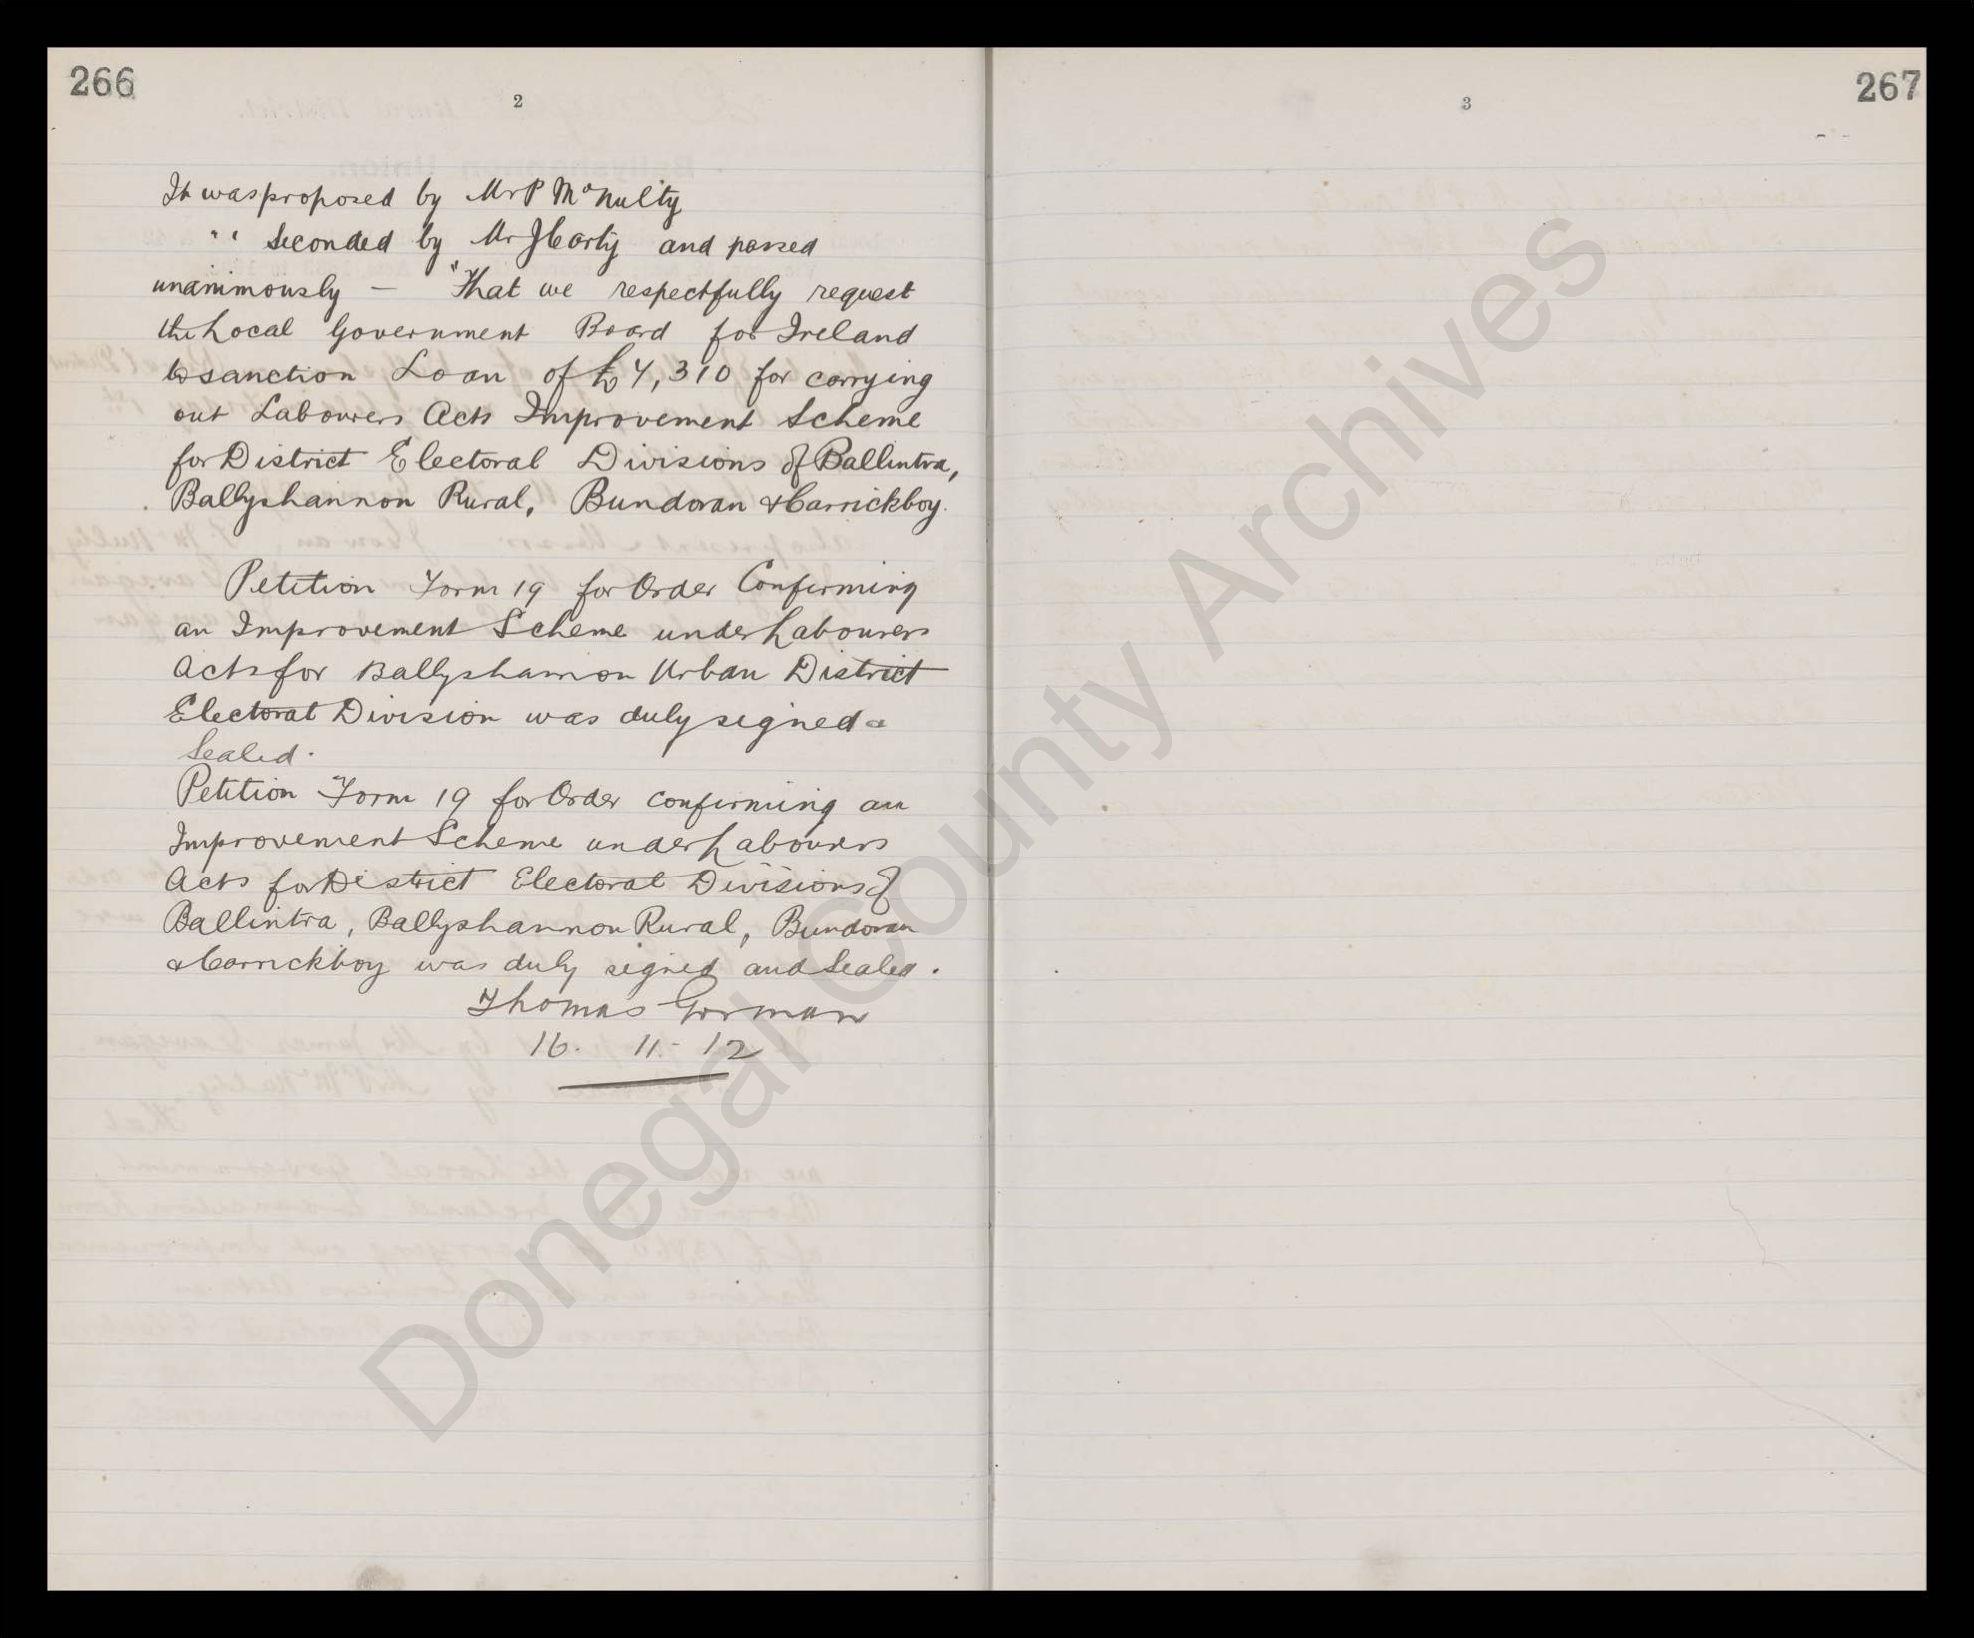 266
2
It was proposed by Mr P McNulty
" " Seconded by Mr J Carty and passed
unanimously — "That we respectfully request
the Local Government Board for Ireland
to sanction Loan of £4,310 for carrying
out Labourers Acts Improvement Scheme
for District Electoral Divisions of Ballintra,
Ballyshannon Rural, Bundoran & Carrickboy.
Petition Form 19 for Order Confirming
an Improvement Scheme under Labourers
Acts for Ballyshannon Urban District
Electoral Division was duly signed &
Sealed.
Petition Form 19 for Order confirming an
Improvement Scheme under Labourers
Acts for District Electoral Divisions of
Ballintra, Ballyshannon Rural, Bundoran
& Carrickboy was duly signed and Sealed.
Thomas Gorman
16. 11- 12
267
3
Donegal County Archives